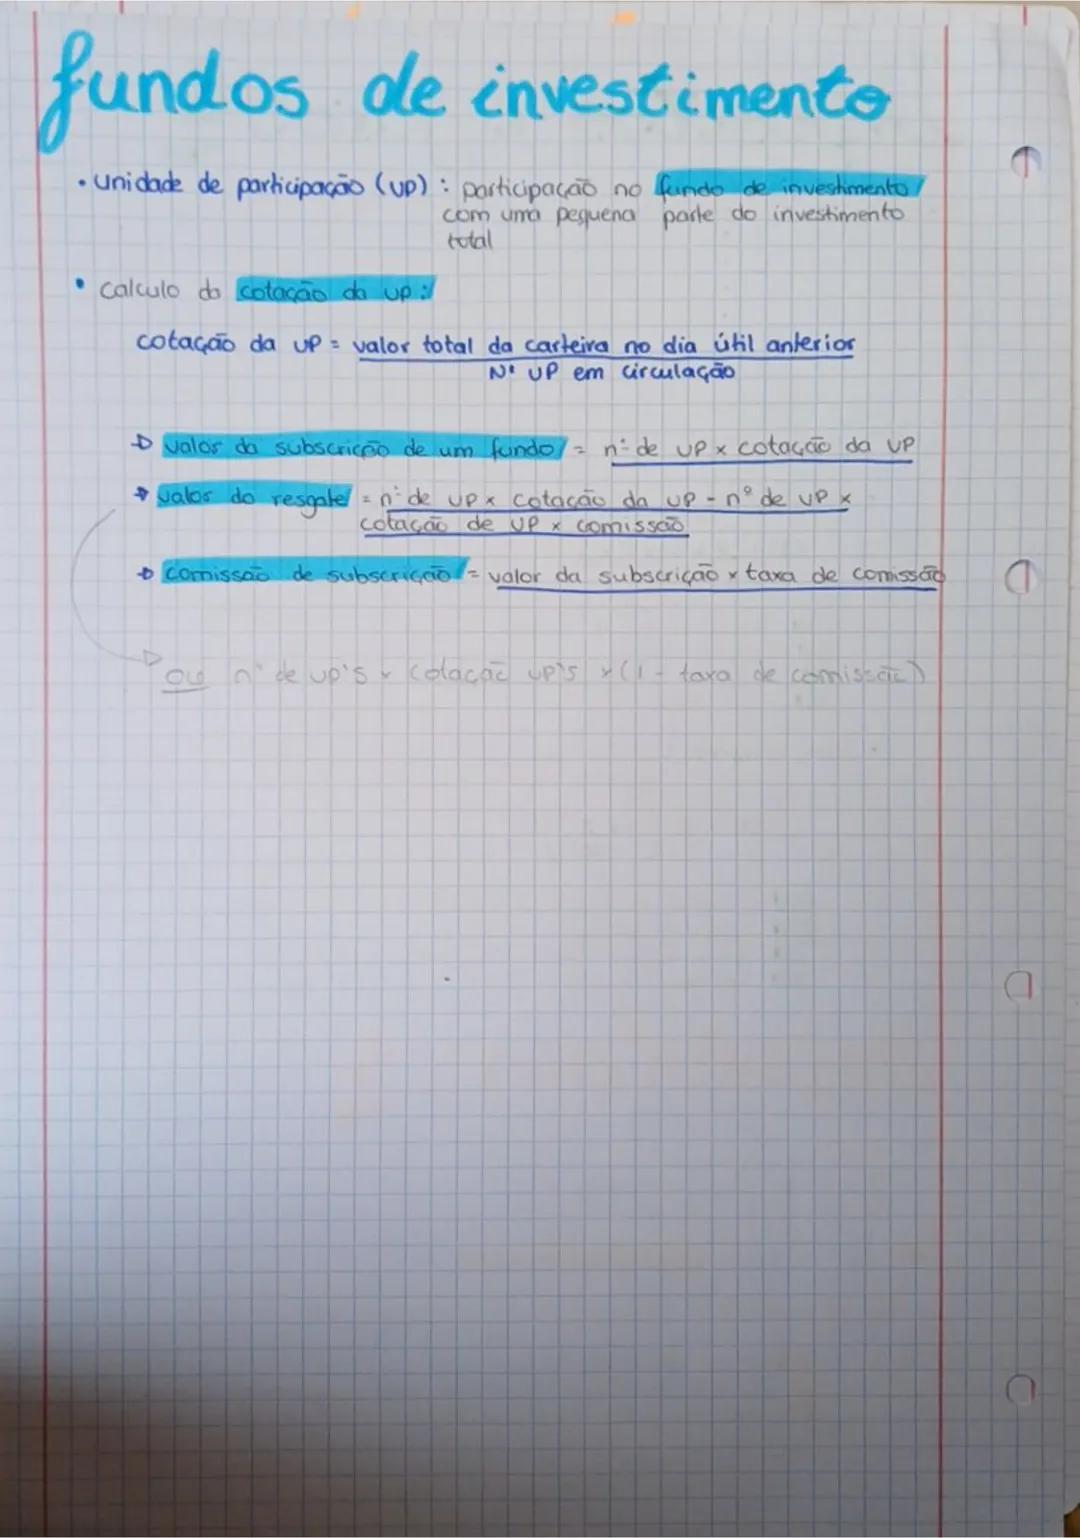 fundos de investimento
• unidade de participação (UP) : participação no fundo de investimento
com uma pequena parte do investimento
total
• calculo da cotação da UP:
cotação da UP = valor total da carteira no dia útil anterior
Nº UP em circulação
→ valor da subscrição de um fundo = nº de UP x cotação da UP
→ valor do resgate = nº de UP x cotação da UP - nº de UP x
cotação de UP x comissão
→ comissão de subscrição = valor da subscrição x taxa de comissão
→ ou nº de UP's x cotação UP's x (1 - taxa de comissão)